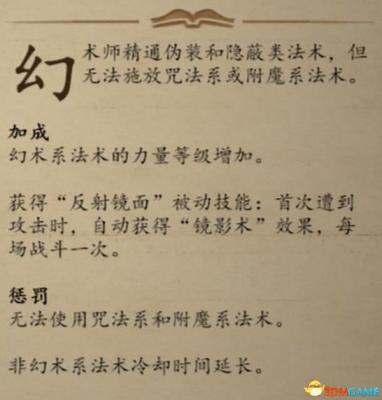 幻术师精通伪装和隐蔽类法术，但
无法施放咒法系或附魔系法术。
加成
幻术系法术的力量等级增加。
获得“反射镜面”被动技能：首次遭到
攻击时，自动获得“镜影术”效果，每
场战斗一次。
惩罚
无法使用咒法系和附魔系法术。
非幻术系法术冷却时间延长。
3DMGAME